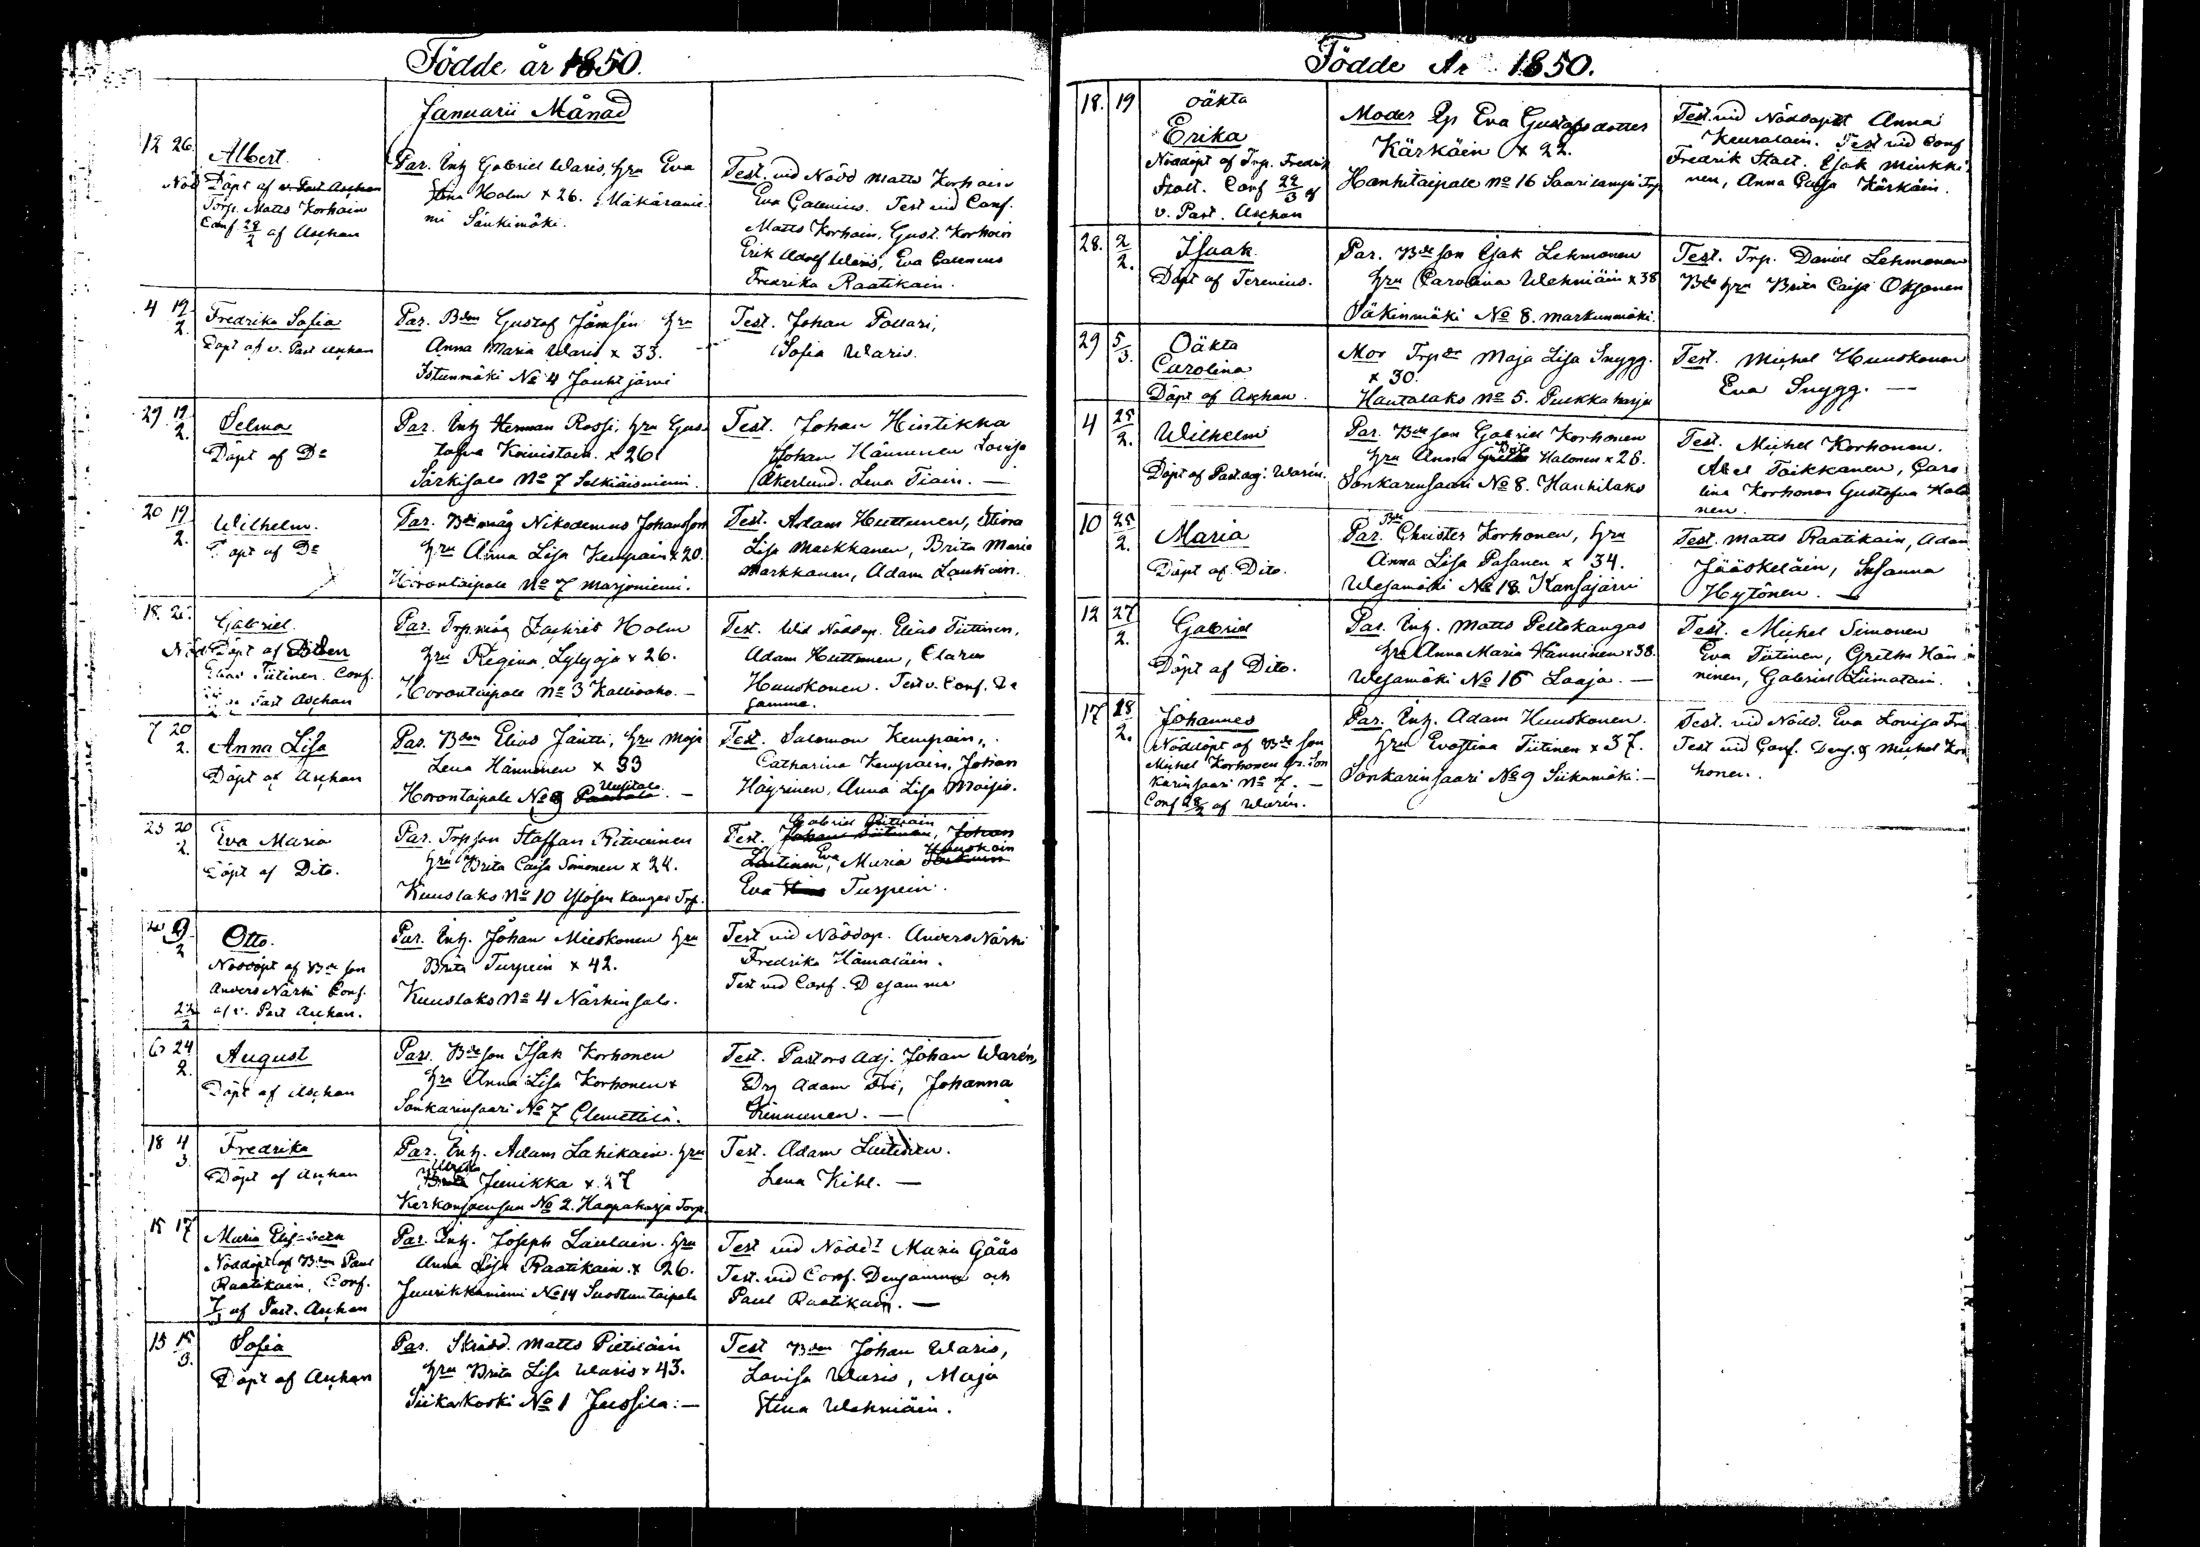 Födde år 1850.
Januarii Månad
12 26. Albert.
Nöd Döpt af v. Past Aschan
Torp. Matts Korhoin
Conf 28/2 af Aschan
Par. Inh Gabriel Waris, hru Eva
Stina Holm x 26. Mäkäranie
mi Sänkimäki.
Test. vid Nödd Matts Korhoin
Eva Galenius. Test vid Conf.
Matts Korhoin, Gust. Korhoin
Erik Adolf Waris, Eva Galenius
Fredrika Raatikain.
4 19/2. Fredrika Sofia
Döpt af v. Past Aschan
Par. Bdn Gustaf Jämsén hru
Anna Maria Waris x 33.
Istunmäki No 4 Jauhijärvi
Test. Johan Pollari,
Sofia Waris.
29 19/2. Selma
Döpt af Do
Par. Inh Herman Rossi, hru Gus-
tafva Koivistoin x 26
Särkisalo No 7 Selkiäisniemi.
Test. Johan Hintikka
Johan Hänninen Lovisa
Åkerlund. Lena Tiain. —
20 19/2. Wilhelm.
Döpt af Do
Par. Bdemåg Nikodemus Johansson
hru Anna Lisa Kempain x 20.
Horontaipale No 7 Marjoniemi.
Test. Adam Huttunen, Stina
Lisa Markkanen, Brita Maria
Markkanen, Adam Lautiain.
18. Gabriel.
Nöd Döpt af
Elias Tiitinen. Conf.
Past Aschan
Par. Trp.måg Zachris Holm
hru Regina Lylyoja x 26.
Horontaipale No 3 Kallioaho. —
Test. Wid Nöddop. Elias Tiitinen,
Adam Huttunen, Clara
Huuskonen. Test v. Conf. De
samma.
7 20/2. Anna Lisa
Döpt af Aschan
Par. Bdn Elias Jäntti, hru Maja
Lena Hänninen x 33
Horontaipale No 8 Uusitalo. —
Test. Salomon Kempain,
Catharina Kempain, Johan
Häyrinen, Anna Lisa Moisio.
23 20/2. Eva Maria
Döpt af Dito.
Par. Trpson Staffan Ritvainen
hru Brita Caisa Simonen x 24.
Kuuslaks No 10 Ylösen Kangas Trp.
Gabriel Ritvain
Test. Johan Tiitinen, Johan
Laitinen, Eva Maria Huuskoin
Eva Turpein.
19/2 Otto.
Nöddöpt af Bde son
Anders Närhi Conf.
22/2 af v. Past Aschan.
Par. Inh. Johan Mieskonen hru
Brita Turpein x 42.
Kuuslaks No 4 Närhinsalo.
Test vid Nöddop. Anders Närhi
Fredrika Hämäläin.
Test vid Conf. Desamma
6 24/2. August
Döpt af Aschan
Par. Bdeson Isak Korhonen
hru Anna Lisa Korhonen x
Sonkarinsaari No 7 Clemettilä.
Test. Pastors Adj. Johan Warén,
Drg Adam Fri, Johanna
Kinnunen. —
18 4/3. Fredrika
Döpt af Aschan
Par. Inh. Adam Lahikain. hru
Ulrika
Jienikka x 27
Kerkonjoensuu No 2. Haapaharja Torp.
Test. Adam Laitinen.
Lena Kihl. —
15 17 Maria Elisabeth
Nöddöpt af Bdn Paul
Raatikain, Conf.
af Past. Aschan
Par. Inh. Joseph Laulain. hru
Anna Lisa Raatikain x 26.
Juurikkaniemi No 14 Suostuntaipale
Test vid Nödd Maria Gääs
Test. vid Conf. Densamma och
Paul Raatikain. —
15 15/3. Sofia
Döpt af Aschan
Par. Skrädd. Matts Pietiläin
hru Brita Lisa Waris x 43.
Siikakoski No 1 Jussila: —
Test Bdn Johan Waris,
Lovisa Waris, Maja
Stina Wehniäin.
Födde År 1850.
18. 19 oäkta
Erika
Nöddöpt af Trp. Fredrik
Stolt. Conf 22/3 af
v. Past. Aschan
Moder Pp Eva Gustafsdotter
Kärkäin x 22.
Hanhitaipale No 16 Saarilampi Trp
Test. vid Nöddopet Anna
Keuralain. Test vid Conf
Fredrik Stolt. Isak Minkki-
nen, Anna Caisa Kärkäin.
28. 2/2. Isaak
Döpt af Terenius.
Par. Bde son Isak Lehmonen
hru Carolina Wehniäin x 38
Säkinmäki No 8. Markunmäki.
Test. Trp. Daniel Lehmonen
Bde hru Brita Caisa Oksanen
29 5/3. Oäkta
Carolina
Döpt af Aschan.
Mor Trp dr Maja Lisa Snygg.
x 30.
Hautalaks No 5. Pukkaharju
Test. Michel Huuskonen
Eva Snygg. —
4 25/2. Wilhelm
Döpt af Past. adj. Warén.
Par. Bde son Gabriel Korhonen
hru Anna Brita Halonen x 26.
Sonkarinsaari No 8. Hauhilaks
Test. Michel Korhonen.
Abel Toikkanen, Caro
lina Korhonen Gustafva Halo
nen.
10 25/2. Maria
Döpt af Dito.
Par. Bde Christer Korhonen, hru
Anna Lisa Pasanen x 34.
Wesamäki No 18. Kansajärvi
Test. Matts Raatikain, Adam
Jääskeläin, Susanna
Hytönen. —
12 27/2. Gabriel
Döpt af Dito.
Par. Inh. Matts Peltokangas
hru Anna Maria Hänninen x 38.
Wesamäki No 16 Laaja. —
Test. Michel Simonen
Eva Tiitinen, Gretha Hän
ninen, Gabriel Liimatain.
17 28/2. Johannes
Nöddöpt af Bde son
Michel Korhonen fr. Son
karinsaari No 7. —
Conf 28/2 af Warén.
Par. Inh. Adam Huuskonen.
hru Evastina Tiitinen x 37.
Sonkarinsaari No 9 Siikamäki. —
Test. vid Nödd. Eva Lovisa Fri
Test vid Conf. Dens. & Michel Kor
honen.